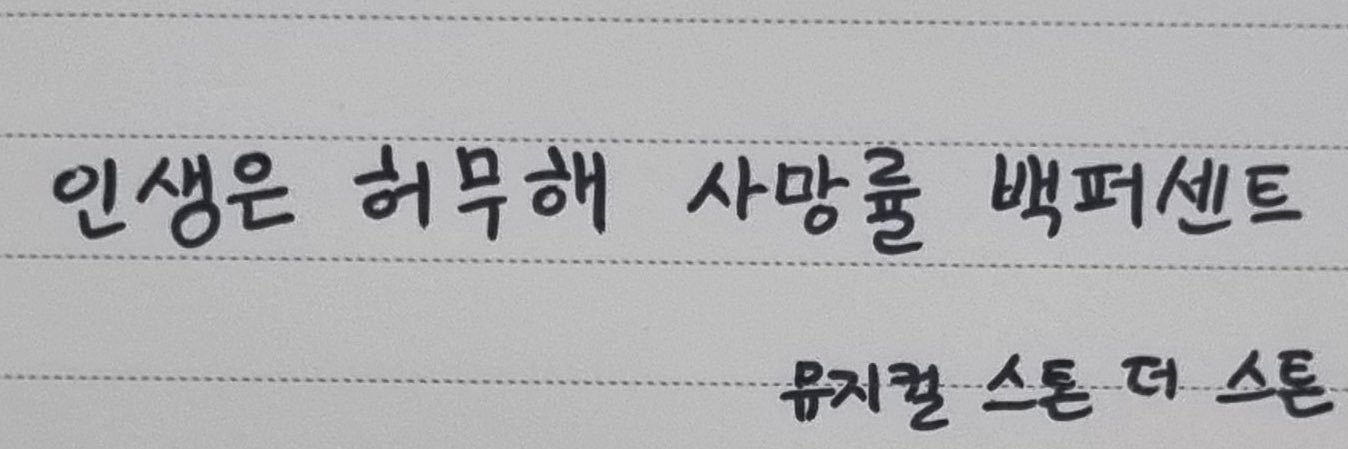 인생은 허무해 사망률 백퍼센트
뮤지컬 스톤 더 스톤